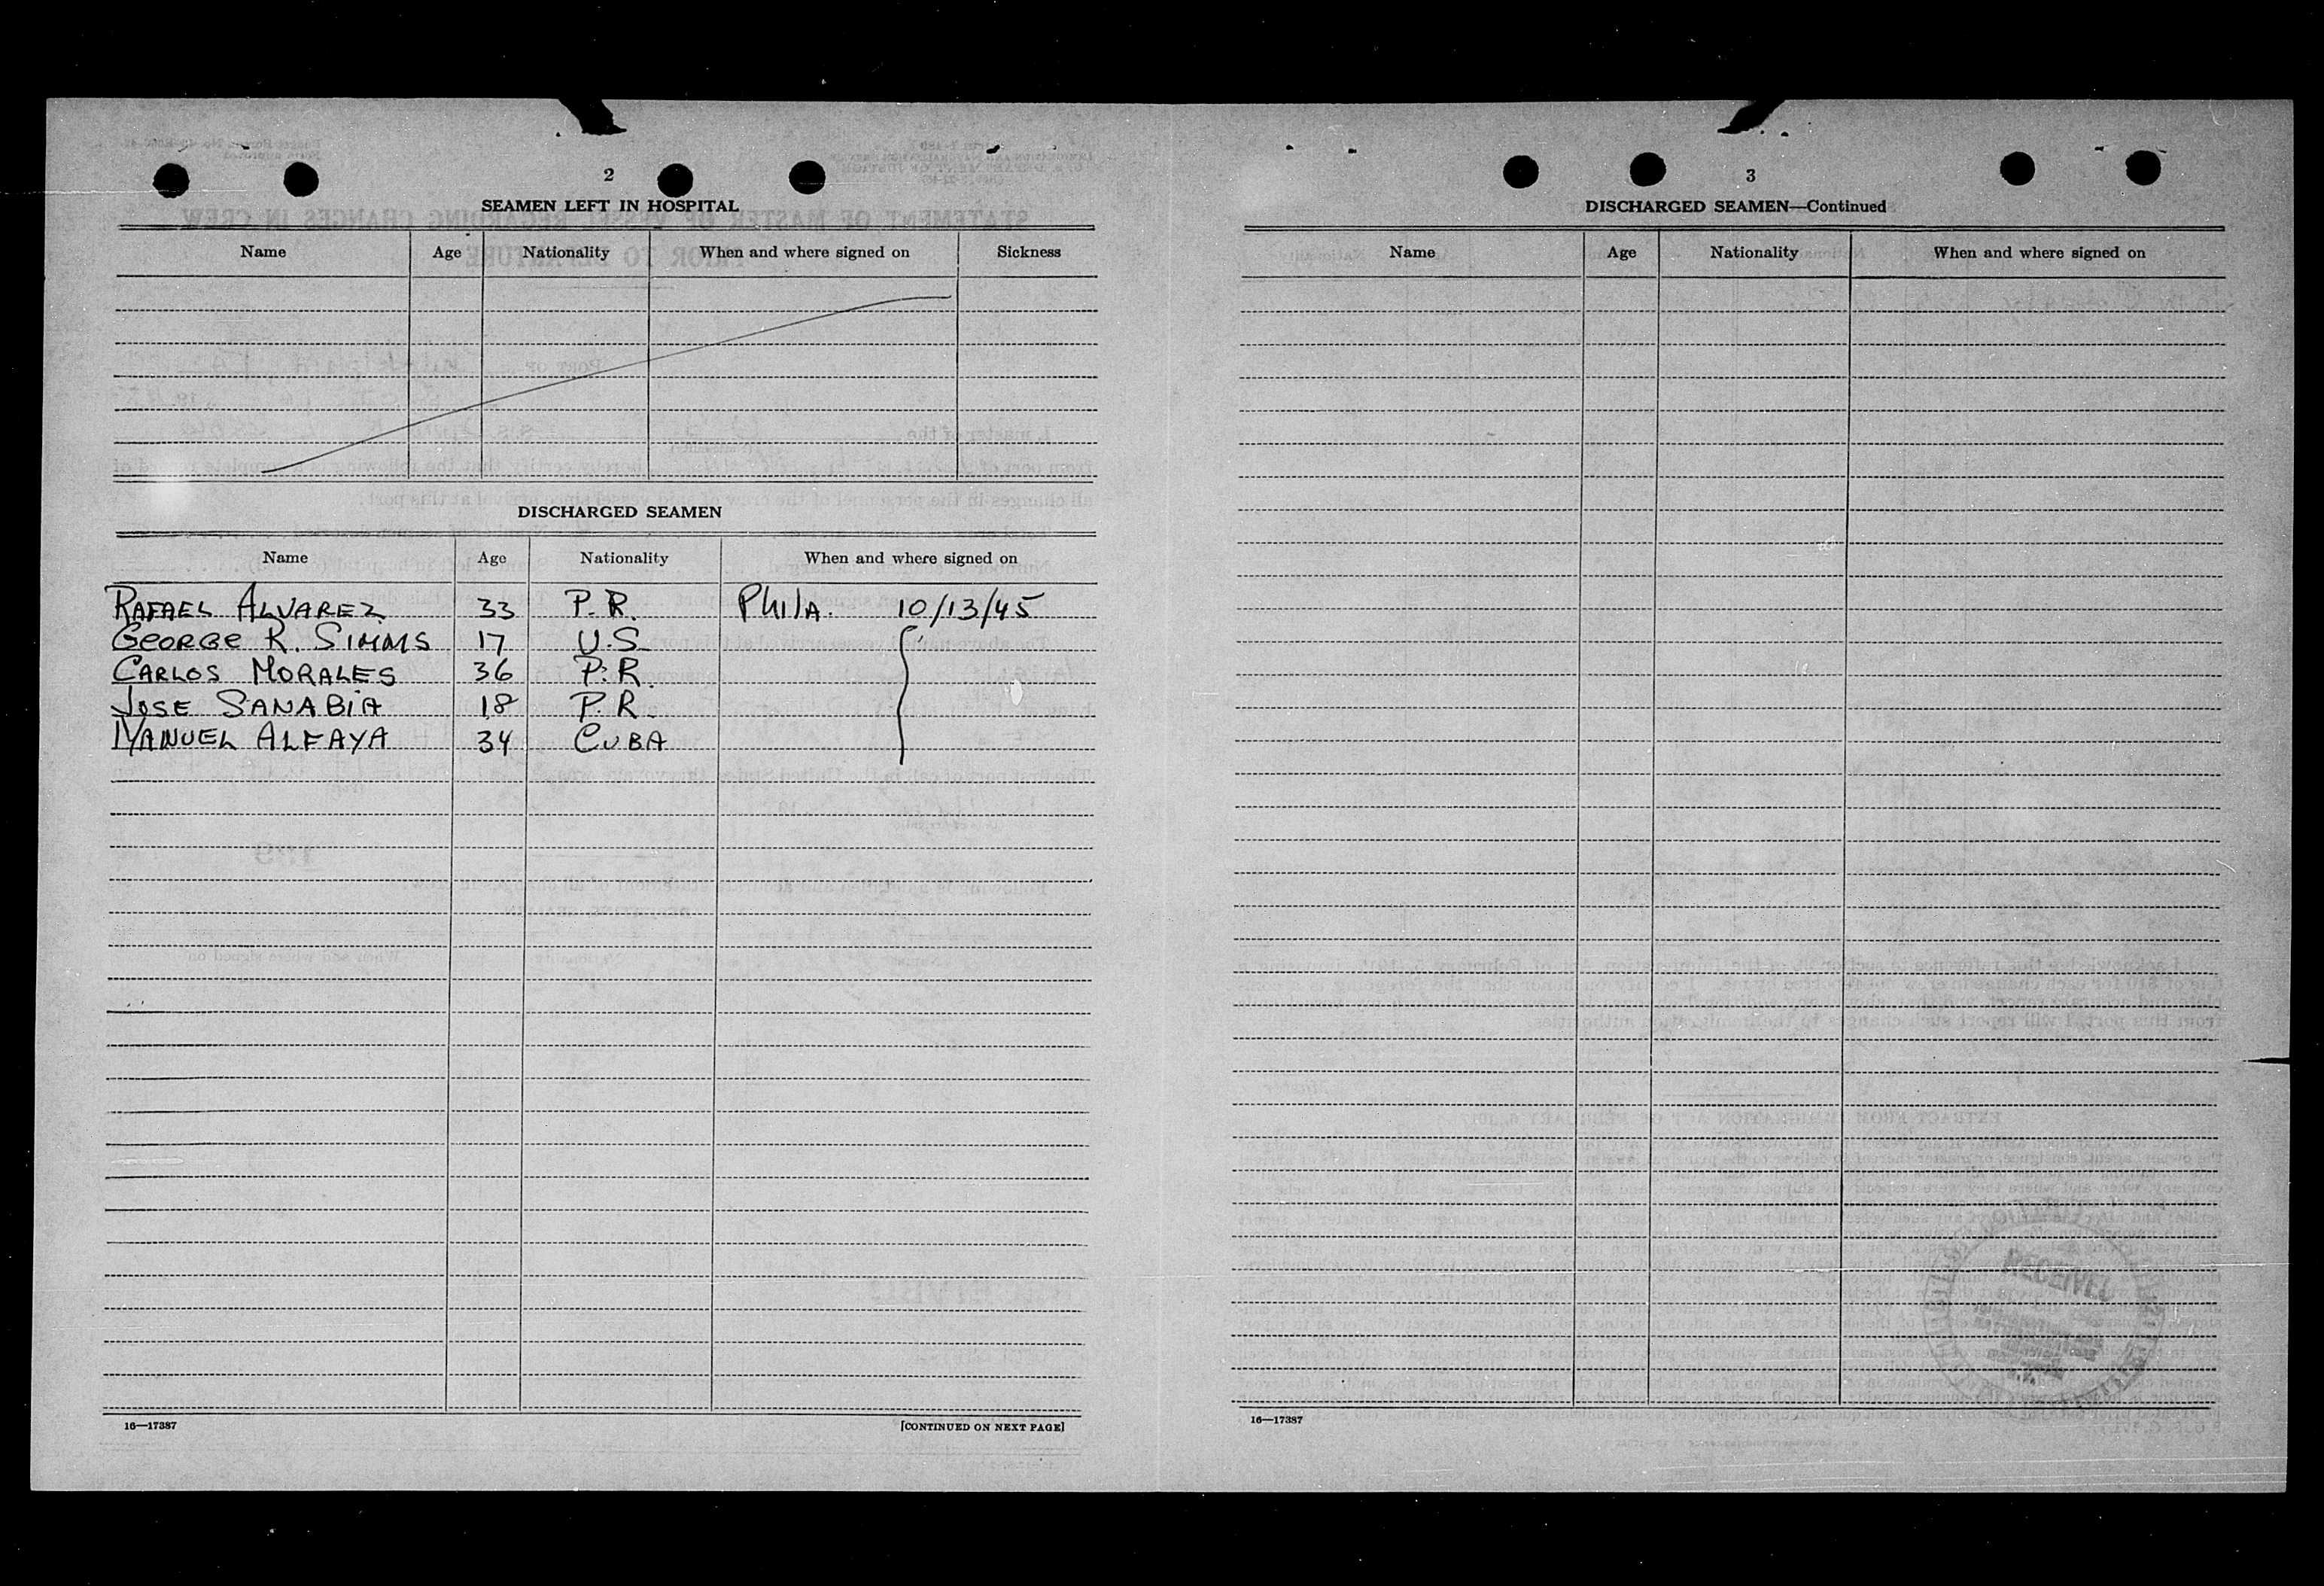 2
SEAMEN LEFT IN HOSPITAL
Name Age Nationality When and where signed on Sickness
DISCHARGED SEAMEN
Name Age Nationality When and where signed on
RAFAEL ALVAREZ 33 P.R. PhilA. 10/13/45
GEORGE R. SIMMS 17 U.S.
CARLOS MORALES 36 P.R.
JOSE SANABIA 18 P.R.
MANUEL ALFAYA 34 CUBA
16—17387 [CONTINUED ON NEXT PAGE]
3
DISCHARGED SEAMEN—Continued
Name Age Nationality When and where signed on
RECEIVED
16—17387